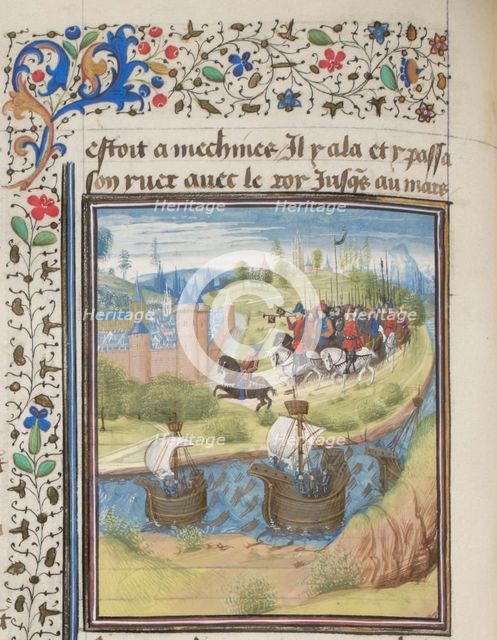 estoit a mechines Il y ala et y passa
son yuer auec le roy Jusqs au mars
Heritage
Heritage
Heritage
Heritage
Heritage
Heritage
Heritage
Heritage
©